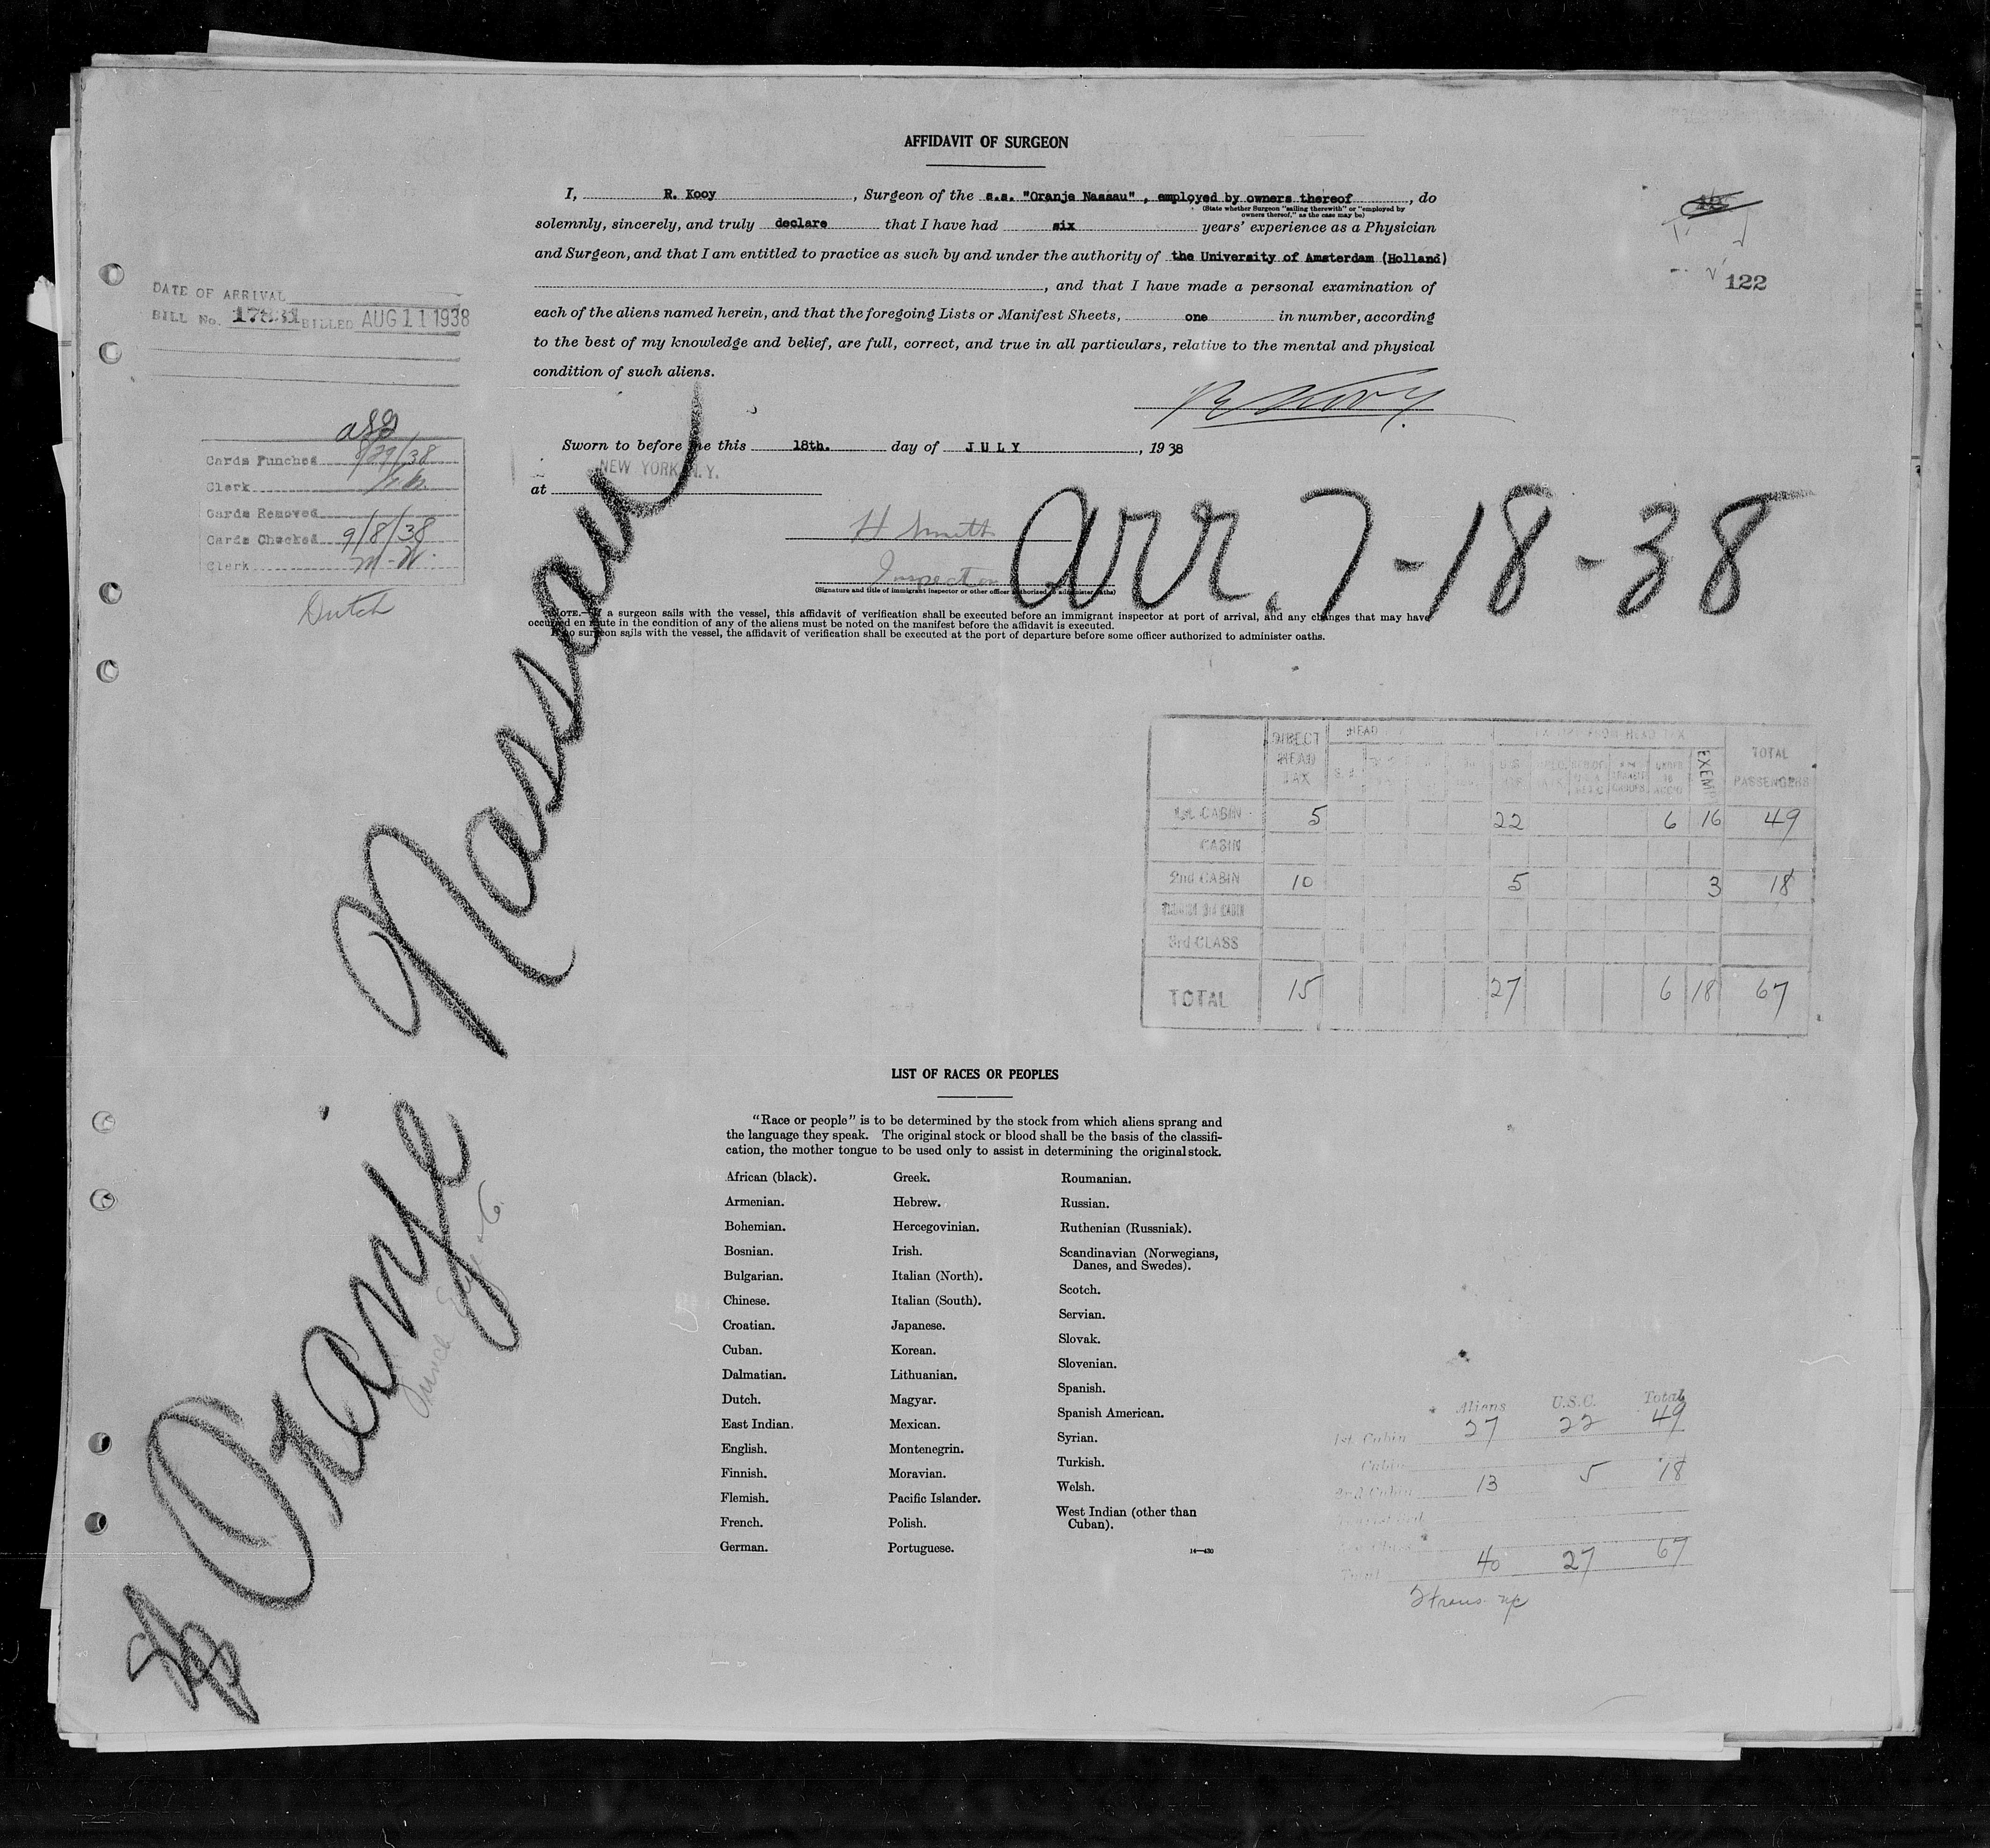 AFFIDAVIT OF SURGEON
I, R. Kooy, Surgeon of the s.s. "Oranje Nassau", employed by owners thereof, do
(State whether Surgeon "sailing therewith" or "employed by
owners thereof," as the case may be)
solemnly, sincerely, and truly declare that I have had six years' experience as a Physician
and Surgeon, and that I am entitled to practice as such by and under the authority of the University of Amsterdam (Holland)
, and that I have made a personal examination of
each of the aliens named herein, and that the foregoing Lists or Manifest Sheets, one in number, according
to the best of my knowledge and belief, are full, correct, and true in all particulars, relative to the mental and physical
condition of such aliens.
R Kooy.
Sworn to before me this 18th. day of JULY, 1938
at NEW YORK N.Y.
H Smith
Inspector
(Signature and title of immigrant inspector or other officer authorized to administer oaths)
NOTE.—If a surgeon sails with the vessel, this affidavit of verification shall be executed before an immigrant inspector at port of arrival, and any changes that may have
occurred en route in the condition of any of the aliens must be noted on the manifest before the affidavit is executed.
If no surgeon sails with the vessel, the affidavit of verification shall be executed at the port of departure before some officer authorized to administer oaths.
122
DATE OF ARRIVAL
BILL No. BILLED AUG 11 1938
Cards Punched 8/29/38
Clerk
Cards Removed
Cards Checked 9/8/38
Clerk M-W.
Dutch
Oranje Nassau
arr. 7-18-38
DIRECT HEAD TAX HEAD FROM HEAD TAX EXEMPT TOTAL PASSENGERS
1st CABIN 5 22 6 16 49
CABIN
2nd CABIN 10 5 3 18
3rd CLASS
TOTAL 15 27 6 18 67
LIST OF RACES OR PEOPLES
"Race or people" is to be determined by the stock from which aliens sprang and
the language they speak. The original stock or blood shall be the basis of the classifi-
cation, the mother tongue to be used only to assist in determining the original stock.
African (black).
Armenian.
Bohemian.
Bosnian.
Bulgarian.
Chinese.
Croatian.
Cuban.
Dalmatian.
Dutch.
East Indian.
English.
Finnish.
Flemish.
French.
German.
Greek.
Hebrew.
Hercegovinian.
Irish.
Italian (North).
Italian (South).
Japanese.
Korean.
Lithuanian.
Magyar.
Mexican.
Montenegrin.
Moravian.
Pacific Islander.
Polish.
Portuguese.
Roumanian.
Russian.
Ruthenian (Russniak).
Scandinavian (Norwegians,
Danes, and Swedes).
Scotch.
Servian.
Slovak.
Slovenian.
Spanish.
Spanish American.
Syrian.
Turkish.
Welsh.
West Indian (other than
Cuban).
14—430
Aliens U.S.C. Total
1st Cabin 27 22 49
Cabin
2nd Cabin 13 5 18
Total 40 27 67